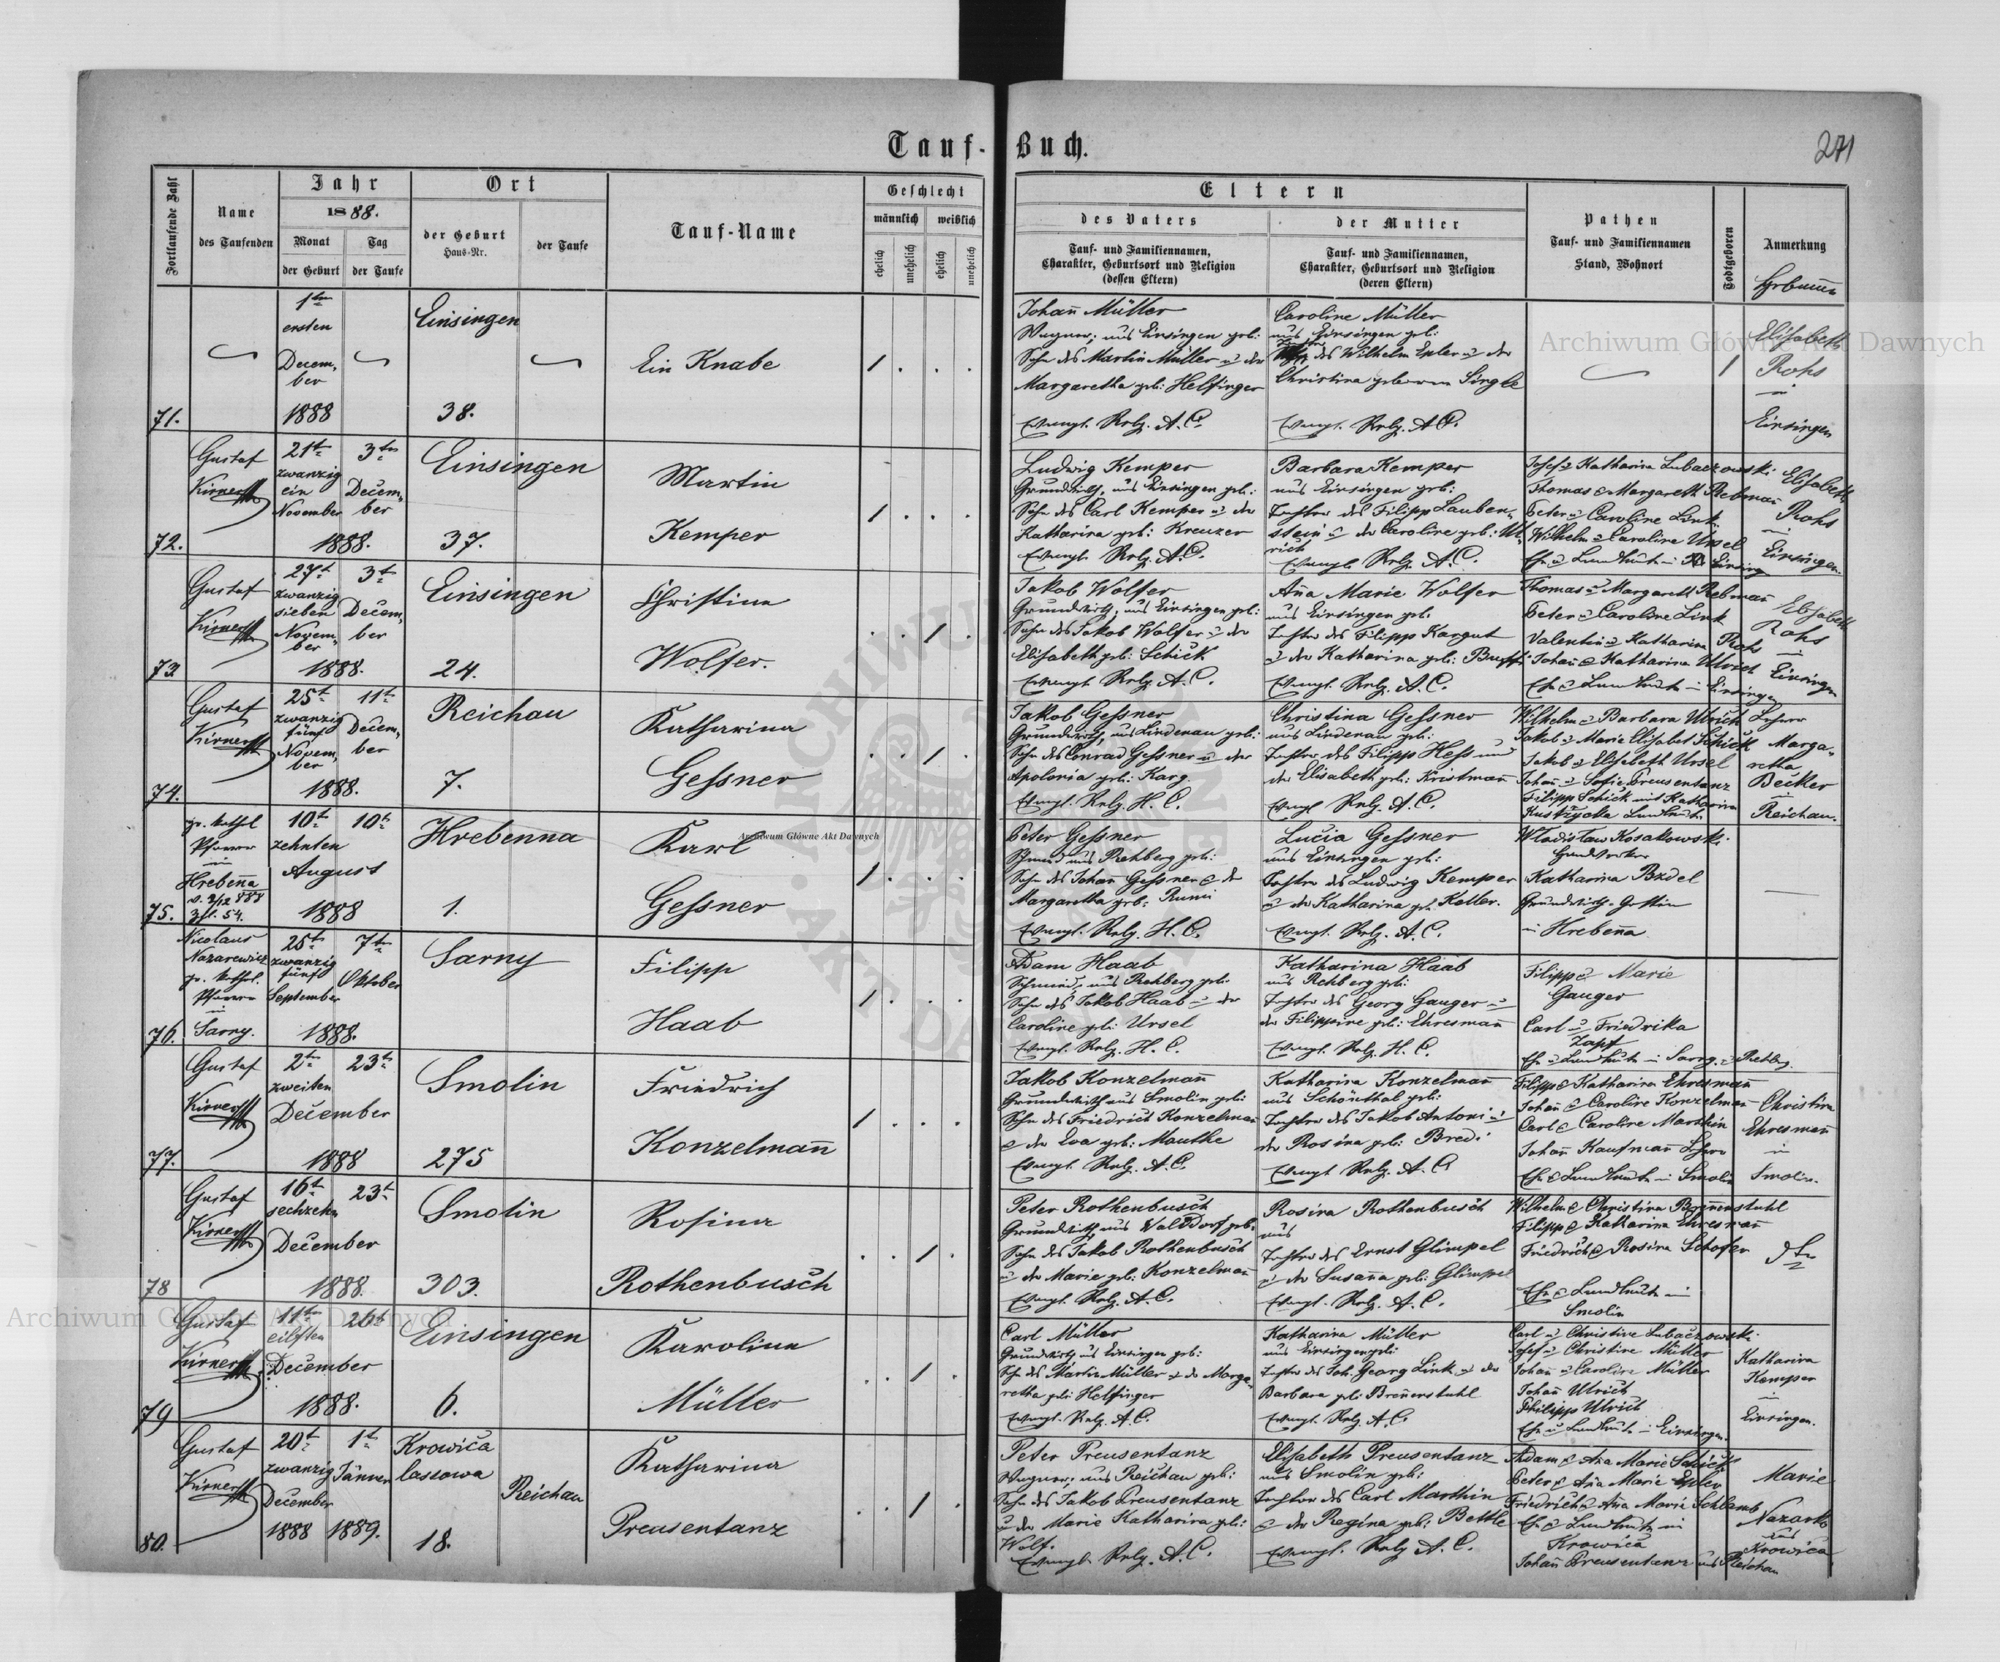 Tauf-Buch.
271
Fortlaufende Zahl
Name
des Taufenden
Jahr
1888.
Monat
der Geburt
Tag
der Taufe
Ort
der Geburt
Haus-Nr.
der Taufe
Tauf-Name
Geschlecht
männlich
weiblich
ehelich
unehelich
ehelich
unehelich
Eltern
des Vaters
Tauf- und Familiennamen,
Charakter, Geburtsort und Religion
(dessen Eltern)
der Mutter
Tauf- und Familiennamen,
Charakter, Geburtsort und Religion
(deren Eltern)
Pathen
Tauf- und Familiennamen
Stand, Wohnort
Todtgeboren
Anmerkung
71.
1ten
ersten
Decem,
ber
1888
Einsingen
38.
Ein Knabe
Johann Müller
Wagner, aus Einsingen geb:
Sohn des Martin Müller u der
Margaretha geb: Helfinger
Evangl. Relg. A.C.
Caroline Müller
aus Einsingen geb:
des Wilhelm Exler u der
Christina geborenen Single
Evangl. Relg. A C.
Elisabeth
Rohs
in
Einsingen
72.
Gustaf
Kirner
21t
zwanzig
ein
November
3ten
Decem,
ber
1888.
Einsingen
37.
Martin
Kemper
Ludwig Kemper
Grundwirth, aus Einsingen geb:
Sohn des Carl Kemper u der
Katharina geb: Kreuzer
Evangl. Relg. A.C.
Barbara Kemper
aus Einsingen geb:
Tochter des Filipp Lauben,
stein u der Caroline geb: Ul,
rich
Evangl. Relg. A.C.
Josef u Katharina Lubaczowski
Thomas & Margareth Rebman
Peter u Caroline Link
Wilhelm u Caroline Ursel
Elisabeth
Rohs
in
Einsingen.
73
Gustaf
Kirner
27t
zwanzig
sieben
Novem,
ber
3t
Decem,
ber
1888.
Einsingen
24.
Christina
Wolfer.
Jakob Wolfer
Grundwirth, aus Einsingen geb:
Sohn des Jakob Wolfer u der
Elisabeth geb: Schick
Evangl. Relg. A.C.
Aña Marie Wolfer
aus Einsingen geb:
Tochter des Filipp Kargut
u der Katharina geb:
Evangl. Relg. A.C.
Thomas u Margareth Rebman
Peter u Caroline Link
Valentin u Katharina Rohs
Johañ & Katharina Ulrich
Elisabeth
Rohs
in
Einsingen
74.
Gustaf
Kirner
25t
zwanzig
fünf
Novem,
ber
11t
Decem,
ber
1888.
Reichau
7.
Katharina
Gessner
Jakob Gessner
Grundwirth, aus Lindenau geb:
Sohn des Conrad Gessner u der
Apolonia geb: Karg.
Evangl. Relg. H.C.
Christina Gessner
aus Lindenau geb:
Tochter des Filipp Hess und
der Elisabeth geb: Kristmañ
Evangl. Relg. A.C.
Wilhelm u Barbara Ulrich Lehrer
Jakob u Marie Elisabet Schick
Jakob u Elisabeth Ursel
Johañ u Sofie Preusentanz
Filipp Schick mit Katharina
Marga,
retha
Becker
in
Reichau.
75.
gr. kathol
Pfarrer
in
Hrebeñа
1888
10t
zehnten
August
10t
Hrebenna
1.
Karl
Gessner
Peter Gessner
Schmied aus Rehberg geb:
Sohn des Johañ Gessner & der
Margaretha geb:
Evangl. Relg. H.C.
Lucia Gessner
aus Einsingen geb:
Tochter des Ludwig Kemper
u der Katharina geb. Keller.
Evangl. Relg. A.C.
Wladislaw Kosakowski
Katharina Bzdel
Grundwirths-Gattin
in Hrebeña
76.
Nicolaus
Nazarewicz
gr. kathol.
Pfarrer
in
Sarny.
25t
zwanzig
fünf
September
7ten
Oktober
1888.
Sarny
Filipp
Haab
Adam Haab
Schmied, aus Rehberg geb:
Sohn des Jakob Haab u der
Caroline geb: Ursel
Evangl. Relg. H.C.
Katharina Haab
aus Rehberg geb:
Tochter des Georg Gauger u
der Filippine geb: Ehresmañ
Evangl. Relg. H.C.
Filipp & Marie
Gauger
Carl u Friedrika
Zapf
77.
Gustaf
Kirner
2t
zweiten
December
23t
1888
Smolin
275
Friedrich
Konzelmañ
Jakob Konzelmañ
Grundwirth aus Smolin geb:
Sohn des Friedrich Konzelman
& der Eva geb: Mauthe
Evangl. Relg. A.C.
Katharina Konzelmañ
aus Schönthal geb:
Tochter des Jakob Antoni u
der Rosina geb: Bredi
Evangl. Relg. A.C.
Filipp & Katharina Ehresmañ
Johañ & Caroline Konzelmañ
Carl & Caroline Marthin
Johañ Kaufmañ Lehrer
Christina
Ehresmañ
in
Smolin.
78
Gustaf
Kirner
16t
sechzehn
December
23t
1888.
Smolin
303.
Rosina
Rothenbusch
Peter Rothenbusch
Grundwirth aus Walddorf geb:
Sohn des Jakob Rothenbusch
u der Marie geb: Konzelmañ
Evangl. Relg. A.C.
Rosina Rothenbusch
aus
Tochter des Ernst Glimpel
u der Susaña geb: Glimpel
Evangl. Relg. A.C.
Wilhelm & Christina Breñenstuhl
Filipp & Katharina Ehresmañ
Friedrich & Rosina Schofer
Smolin
79
Gustaf
Kirner
11ten
eilften
December
26t
1888.
Einsingen
6.
Karolina
Müller
Carl Müller
Grundwirth aus Einsingen geb:
Sohn des Martin Müller u der Marga,
retha geb: Helfinger
Evangl. Relg. A.C.
Katharina Müller
aus Einsingen geb:
Tochter des Joh. Georg Link u der
Barbara geb: Breñerstuhl
Evangl. Relg. A.C.
Carl u Christine Lubaczowski
Josef u Christine Müller
Johañ u Caroline Müller
Johañ Ulrich
Philipp Ulrich
Katharina
Kemper
in
Einsingen.
80.
Gustaf
Kirner
20t
zwanzig
December
1888
1t
Jänner
1889.
Krowica
lassowa
18.
Reichau
Katharina
Preusentanz
Peter Preusentanz
Wagner, aus Reichau geb:
Sohn des Jakob Preusentanz
u der Marie Katharina geb:
Wolf.
Evangl. Relg. A.C.
Elisabeth Preusentanz
aus Smolin geb:
Tochter des Carl Marthin
& der Regina geb: Bettle
Evangl. Relg. A.C.
Adam & Aña Marie Schick
Peter & Aña Marie Exler
Friedrich u Aña Marie Schlamb
Krowica
Johañ Preusentanz aus Reichau
Marie
Nazarko
aus
Krowica
Archiwum Główne Akt Dawnych
Archiwum Główne Akt Dawnych
Archiwum Główne Akt Dawnych